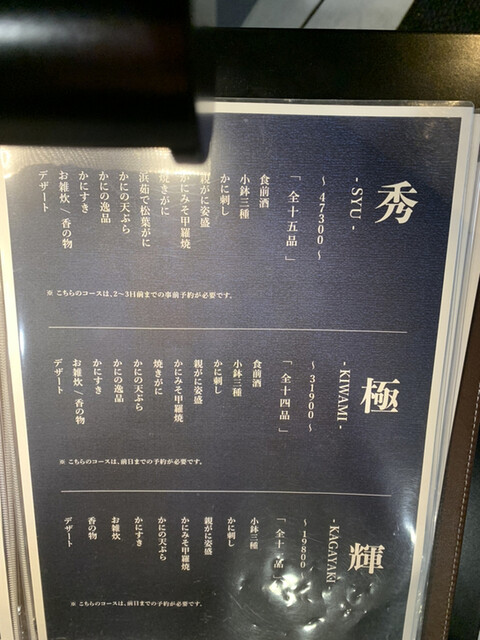 秀
- SYU -
～47300～
「全十五品」
食前酒
小鉢三種
かに刺し
親がに姿盛
かにみそ甲羅焼
焼きがに
浜茹で松葉がに
かにの天ぷら
かにの逸品
かにすき
お雑炊/香の物
デザート
※ こちらのコースは、2～3日前までの事前予約が必要です。
極
- KIWAMI -
～31900～
「全十四品」
食前酒
小鉢三種
かに刺し
親がに姿盛
かにみそ甲羅焼
焼きがに
かにの天ぷら
かにの逸品
かにすき
お雑炊/香の物
デザート
※ こちらのコースは、前日までの予約が必要です。
輝
- KAGAYAKI
～19800
「全十一品」
小鉢三種
かに刺し
親がに姿盛
かにみそ甲羅焼
かにの天ぷら
かにすき
お雑炊
香の物
デザート
※ こちらのコースは、前日までの予約が必要です。